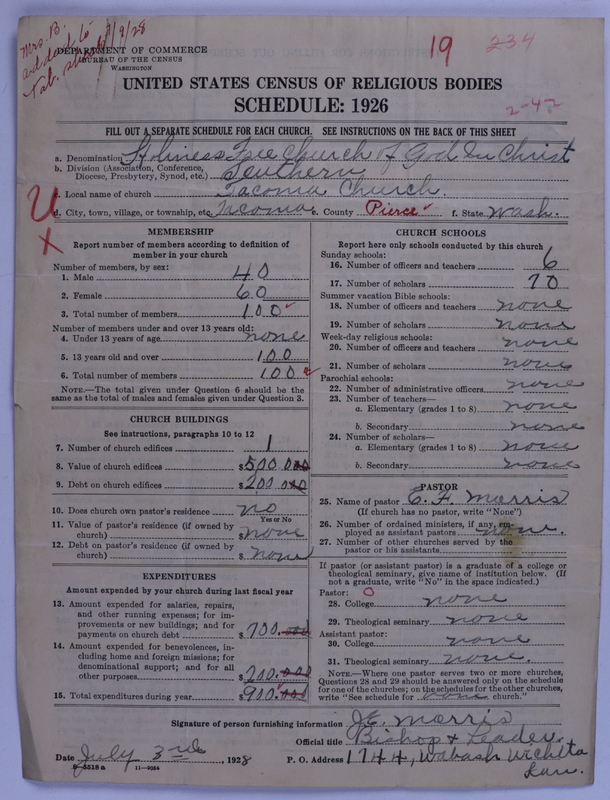 Mrs. B.
added to
tab. sheet 7/9/28
19
234
2-42
DEPARTMENT OF COMMERCE
BUREAU OF THE CENSUS
WASHINGTON
UNITED STATES CENSUS OF RELIGIOUS BODIES
SCHEDULE: 1926
FILL OUT A SEPARATE SCHEDULE FOR EACH CHURCH. SEE INSTRUCTIONS ON THE BACK OF THIS SHEET
a. Denomination Holiness Free Church of God In Christ
b. Division (Association, Conference, Diocese, Presbytery, Synod, etc.) Southern
c. Local name of church Tacoma Church.
d. City, town, village, or township, etc. Tacoma e. County Pierce f. State Wash.
X
MEMBERSHIP
Report number of members according to definition of
member in your church
Number of members, by sex:
1. Male 40
2. Female 60
3. Total number of members 100
Number of members under and over 13 years old:
4. Under 13 years of age none
5. 13 years old and over 100
6. Total number of members 100
NOTE.—The total given under Question 6 should be
same as the total of males and females given under Question 3.
CHURCH BUILDINGS
See instructions, paragraphs 10 to 12
7. Number of church edifices 1
8. Value of church edifices $500 000
9. Debt on church edifices $200 000
10. Does church own pastor's residence no
Yes or No
11. Value of pastor's residence (if owned by
church) $ none
12. Debt on pastor's residence (if owned by
church) $ none
EXPENDITURES
Amount expended by your church during last fiscal year
13. Amount expended for salaries, repairs,
and other running expenses; for im-
provements or new buildings; and for
payments on church debt $700.000
14. Amount expended for benevolences, in-
cluding home and foreign missions; for
denominational support; and for all
other purposes $200.000
15. Total expenditures during year $900.000
CHURCH SCHOOLS
Report here only schools conducted by this church
Sunday schools:
16. Number of officers and teachers 6
17. Number of scholars 70
Summer vacation Bible schools:
18. Number of officers and teachers none
19. Number of scholars none
Week-day religious schools:
20. Number of officers and teachers none
21. Number of scholars none
Parochial schools:
22. Number of administrative officers none
23. Number of teachers—
a. Elementary (grades 1 to 8) none
b. Secondary none
24. Number of scholars—
a. Elementary (grades 1 to 8) none
b. Secondary none
PASTOR
25. Name of pastor C. F. Morris
(If church has no pastor, write "None")
26. Number of ordained ministers, if any, em-
ployed as assistant pastors none.
27. Number of other churches served by the
pastor or his assistants
If pastor (or assistant pastor) is a graduate of a college or
theological seminary, give name of institution below. (If
not a graduate, write "No" in the space indicated.)
Pastor: O
28. College none
29. Theological seminary none
Assistant pastor:
30. College none
31. Theological seminary none.
NOTE.—Where one pastor serves two or more churches,
Questions 28 and 29 should be answered only on the schedule
for one of the churches; on the schedules for the other churches,
write "See schedule for none church."
Signature of person furnishing information J.E. Morris
Official title Bishop & Leader.
Date July 3rd, 1928 P. O. Address 1744, Wabash Wichita
Kan.
8-5518 a 11-9054